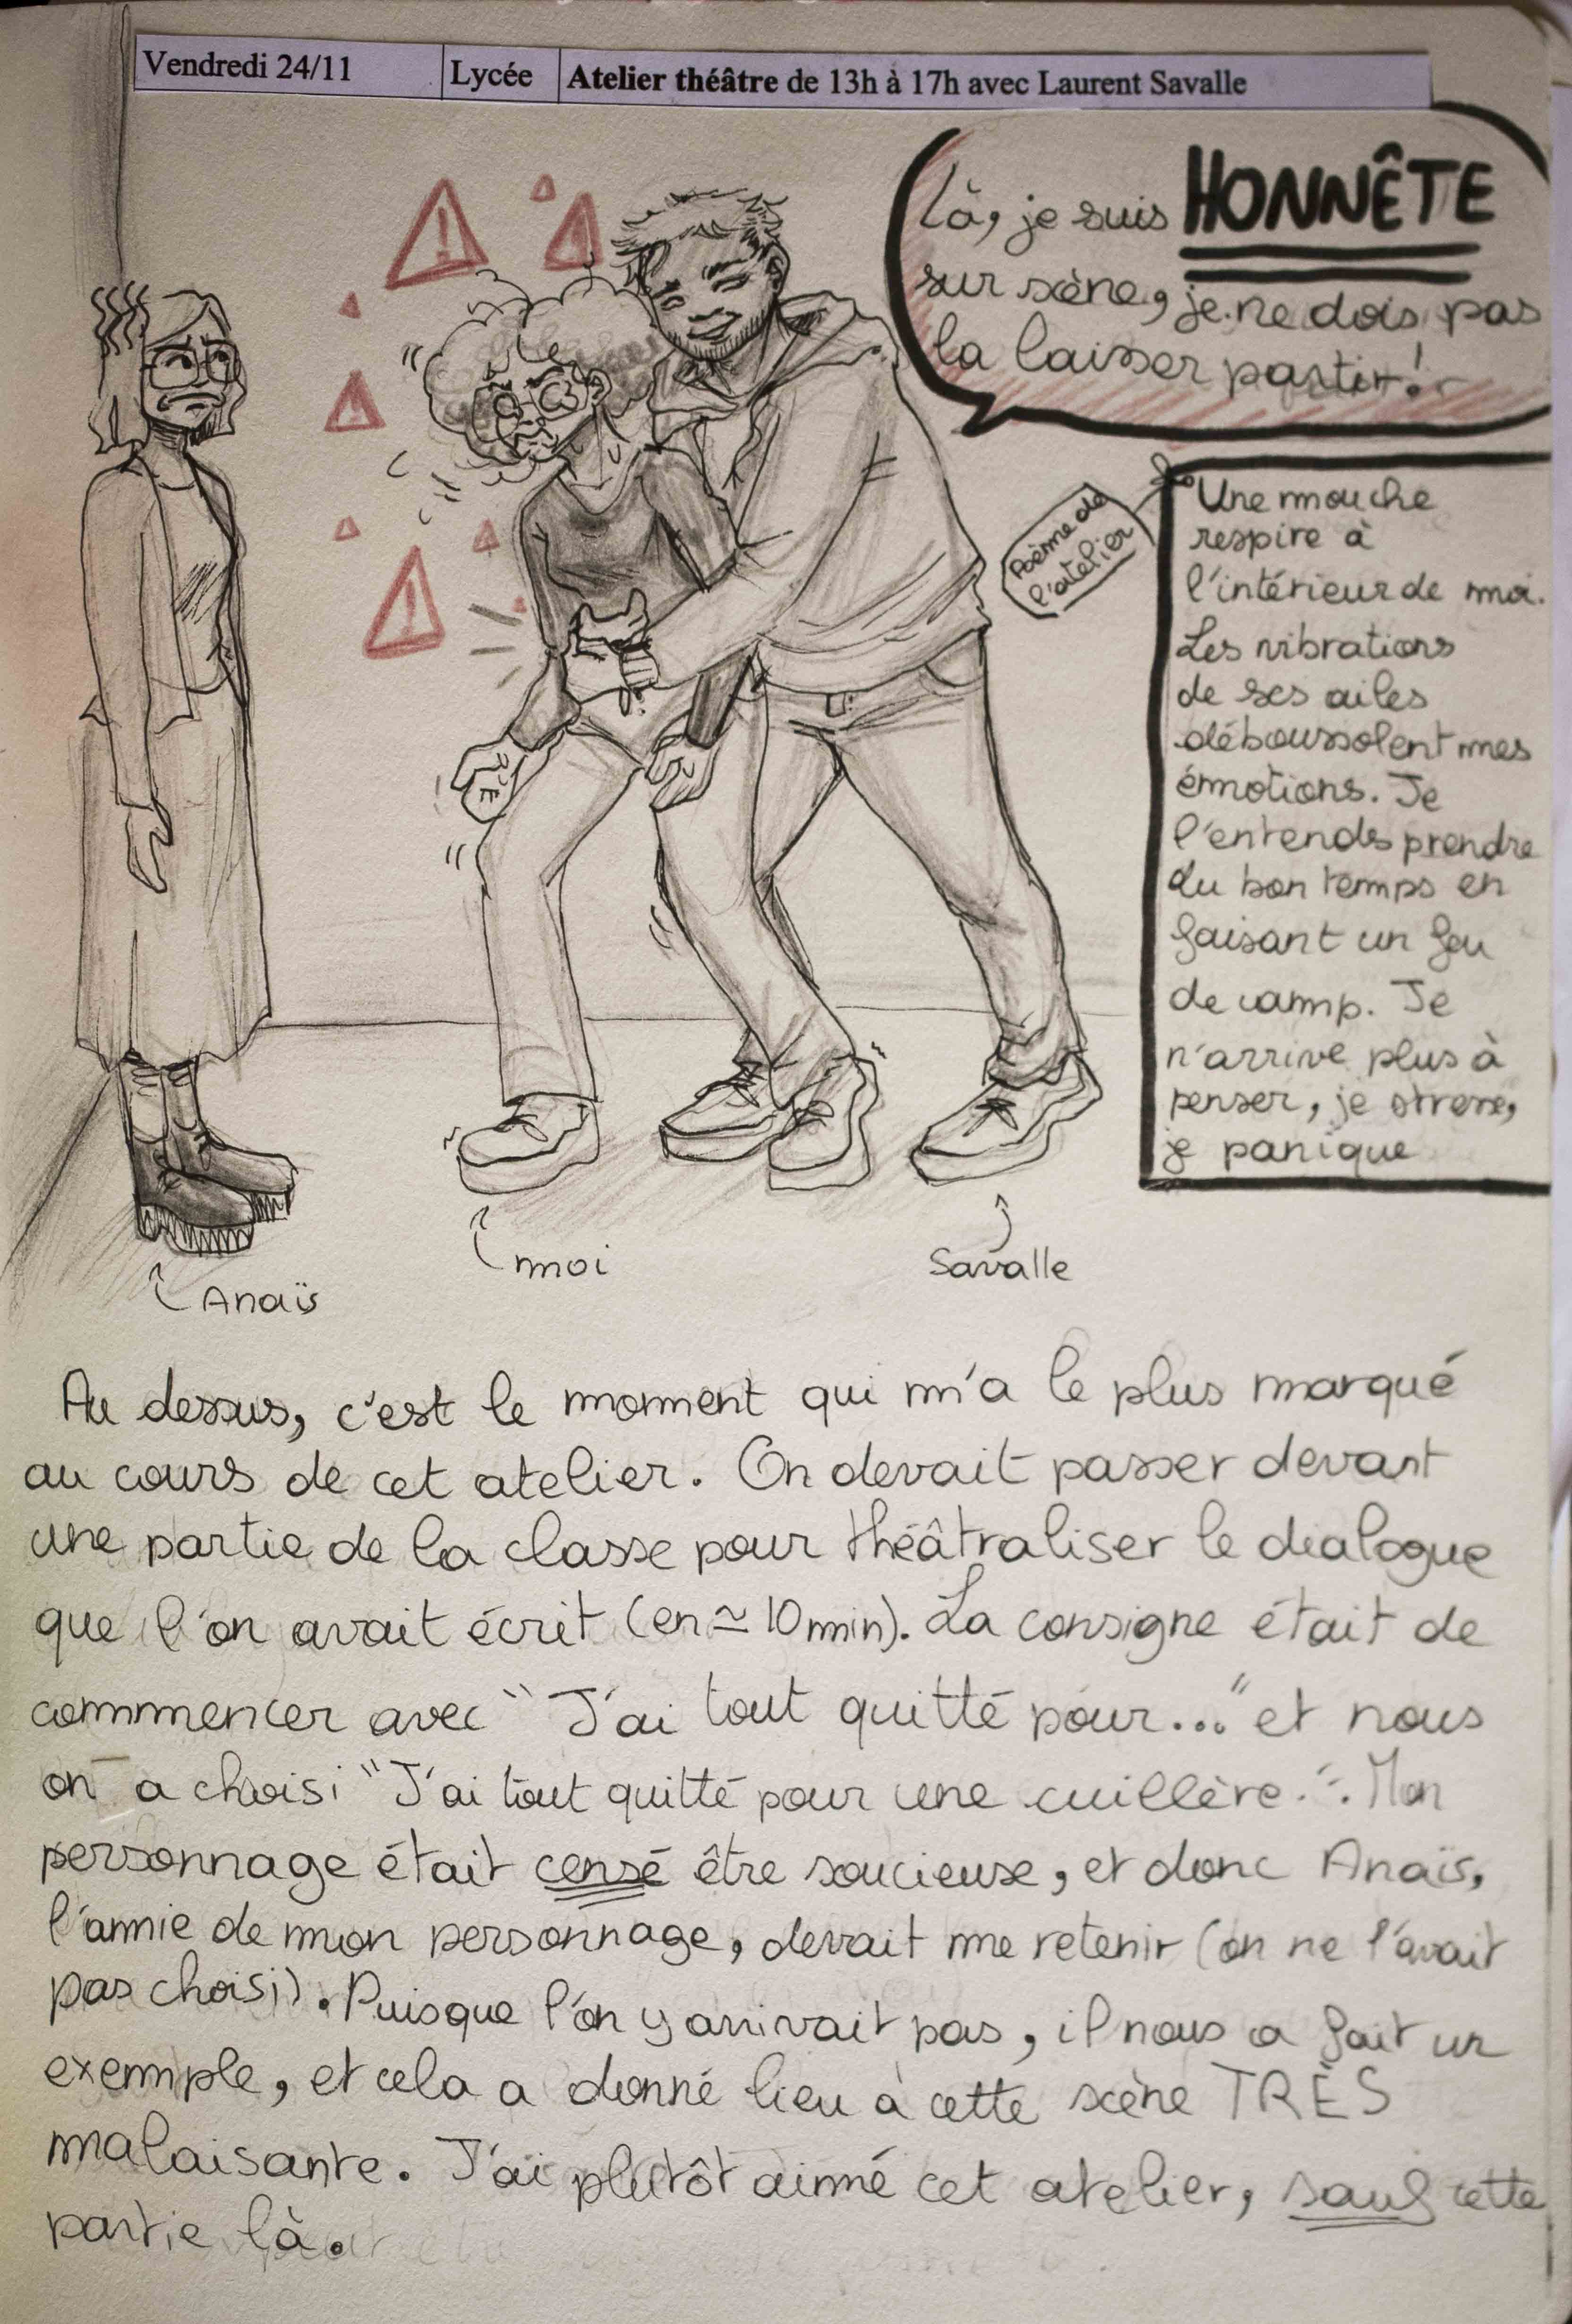 Vendredi 24/11 Lycée Atelier théâtre de 13h à 17h avec Laurent Savalle
Là, je suis HONNÊTE
sur scène, je ne dois pas
la laisser partir !
Poème de
l'atelier
Une mouche
respire à
l'intérieur de moi.
Les vibrations
de ses ailes
déboussolent mes
émotions. Je
l'entends prendre
du bon temps en
faisant un feu
de camp. Je
n'arrive plus à
penser, je stresse,
je panique
moi
Savalle
Anaïs
Au dessus, c'est le moment qui m'a le plus marqué
au cours de cet atelier. On devait passer devant
une partie de la classe pour théâtraliser le dialogue
que l'on avait écrit (en ≃ 10 min). La consigne était de
commencer avec "J'ai tout quitté pour..." et nous
on a choisi "J'ai tout quitté pour une cuillère.". Mon
personnage était censé être soucieuse, et donc Anaïs,
l'amie de mon personnage, devait me retenir (on ne l'avait
pas choisi). Puisque l'on y arrivait pas, il nous a fait un
exemple, et cela a donné lieu à cette scène TRÈS
malaisante. J'ai plutôt aimé cet atelier, sauf cette
partie là.